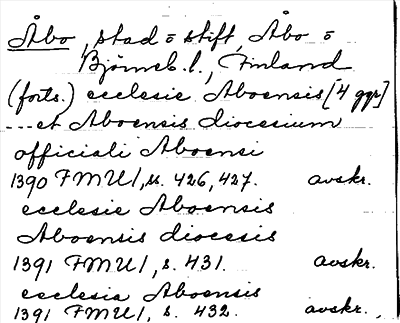 Åbo, stad = o stift, Åbo = o
Björneb. l., Finland
(forts.) ecclesie Aboensis [4 ggr]
... et Aboensis diocesium
officiali Aboensi
1390 FMU 1, s. 426, 427. avskr.
ecclesie Aboensis
Aboensis diocesis
1391 FMU 1, s. 431. avskr.
ecclesia Aboensis
1391 FMU 1, s. 432. avskr.